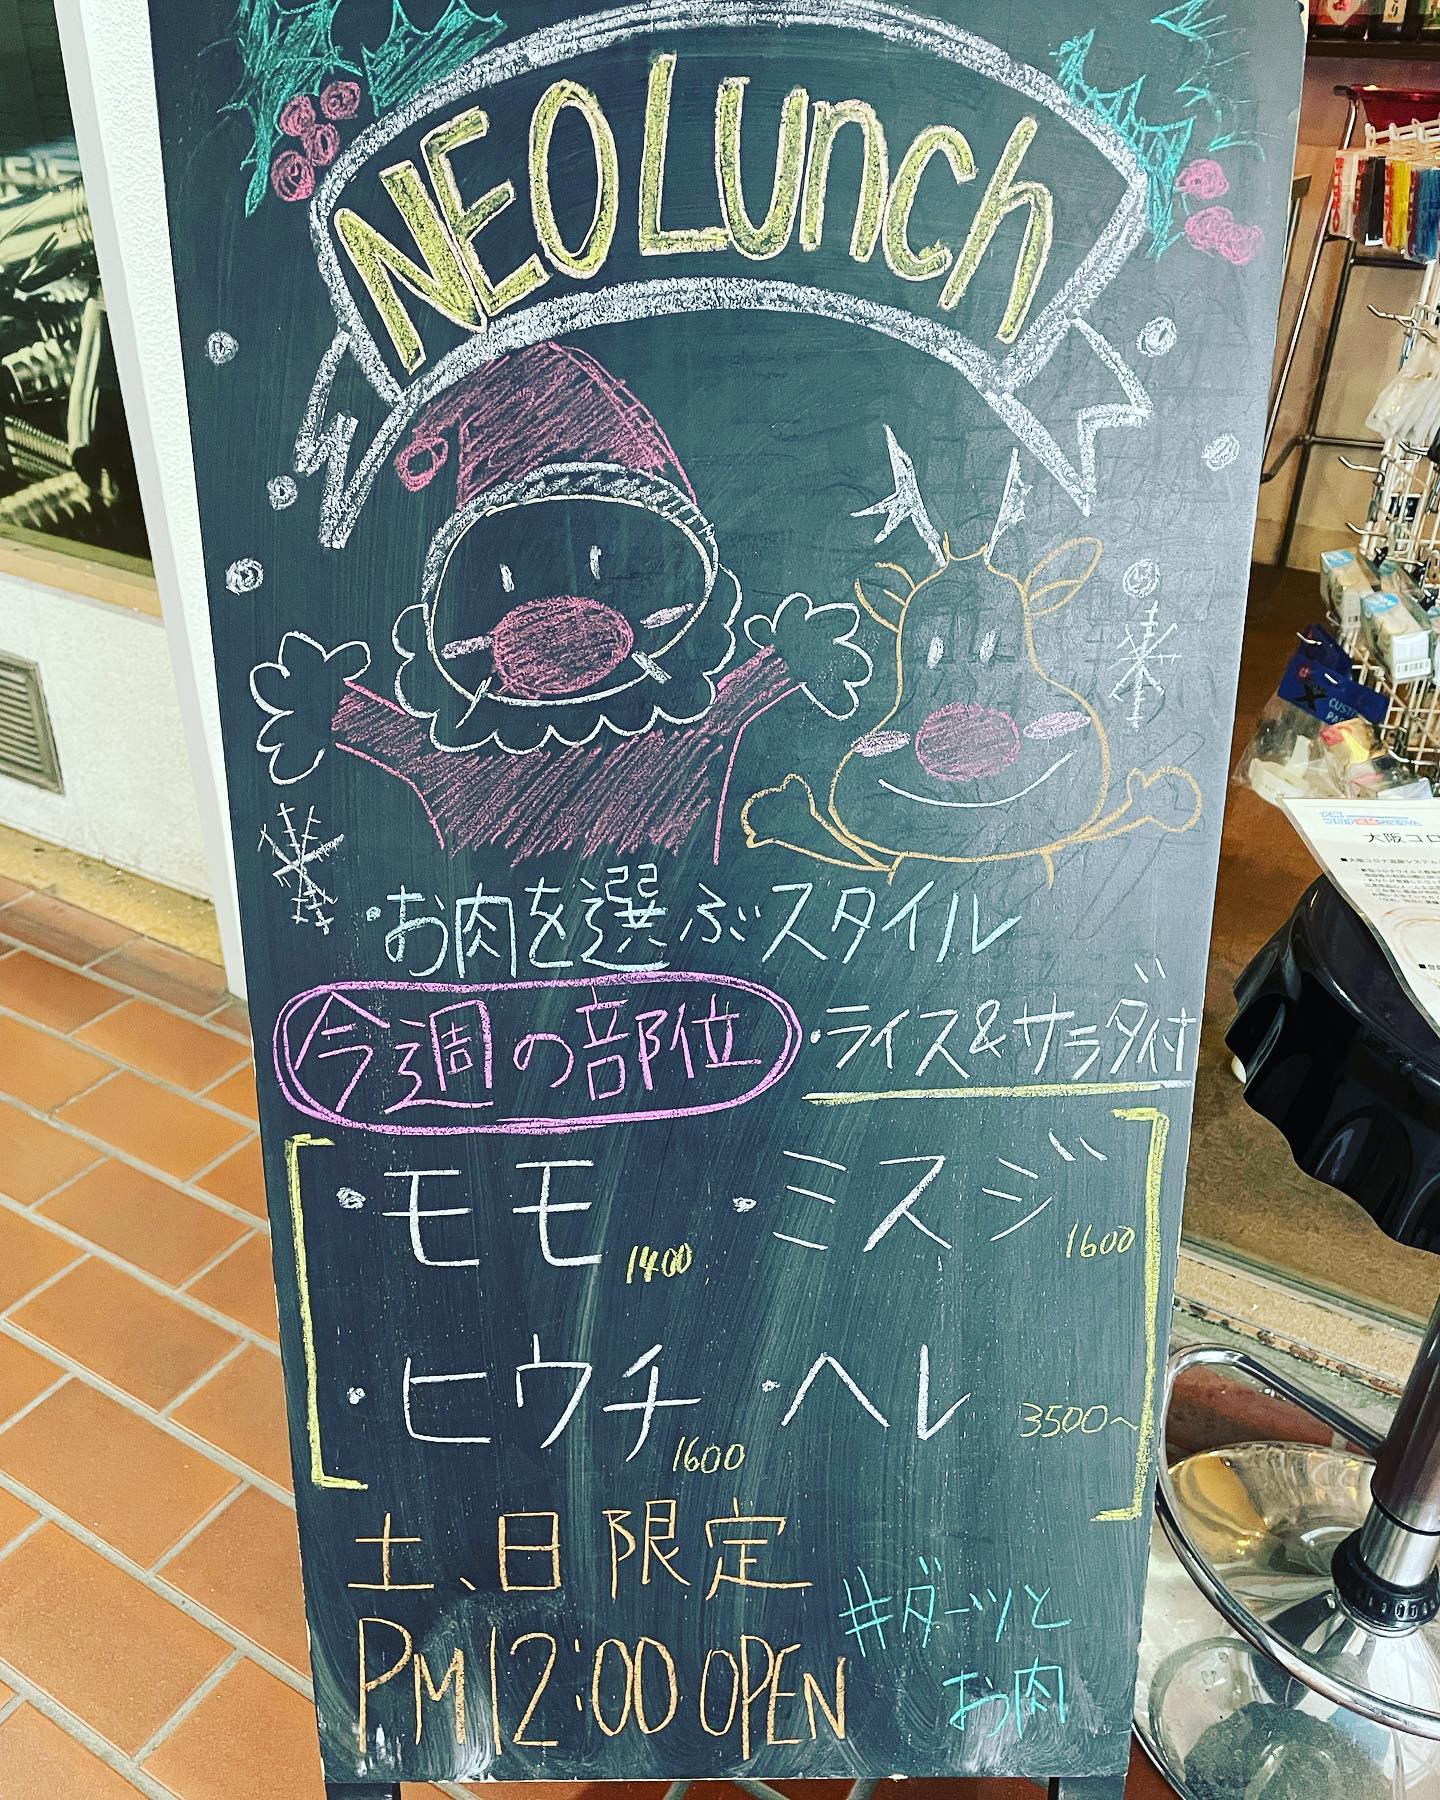 NEO Lunch
・お肉を選ぶスタイル
今週の部位
・ライス&サラダ付
・モモ 1400
・ミスジ 1600
・ヒウチ 1600
・ヘレ 3500〜
土、日限定
PM 12:00 OPEN
#ダーツと
お肉
大阪コロ